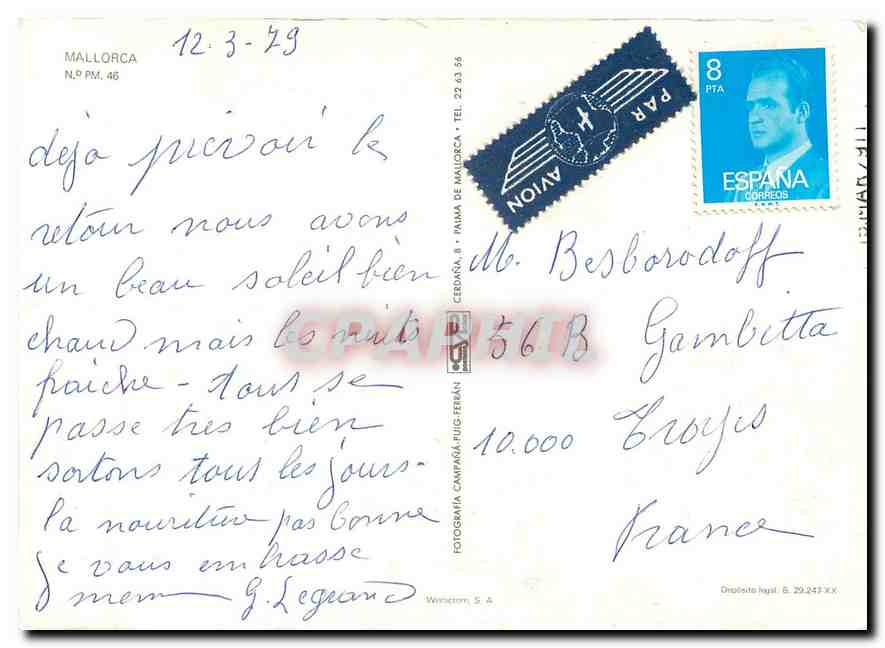 MALLORCA
N.º PM. 46
12-3-79
déjà prévoir le
retour nous avons
un beau soleil bien
chaud mais les nuits
fraiche - tout se
passe très bien
sortons tous les jours -
la nouriture pas bonne
je vous embrasse
G. Legrand
FOTOGRAFÍA CAMPAÑÁ-PUIG-FERRÁN
CERDAÑA, 8 • PALMA DE MALLORCA • TEL. 22 63 56
PAR
AVION
8
PTA
ESPAÑA
CORREOS
M. Besborodoff
56B Gambitta
10.000 Troyes
France
Depósito legal. B. 29.247-XX
CPAPHIL